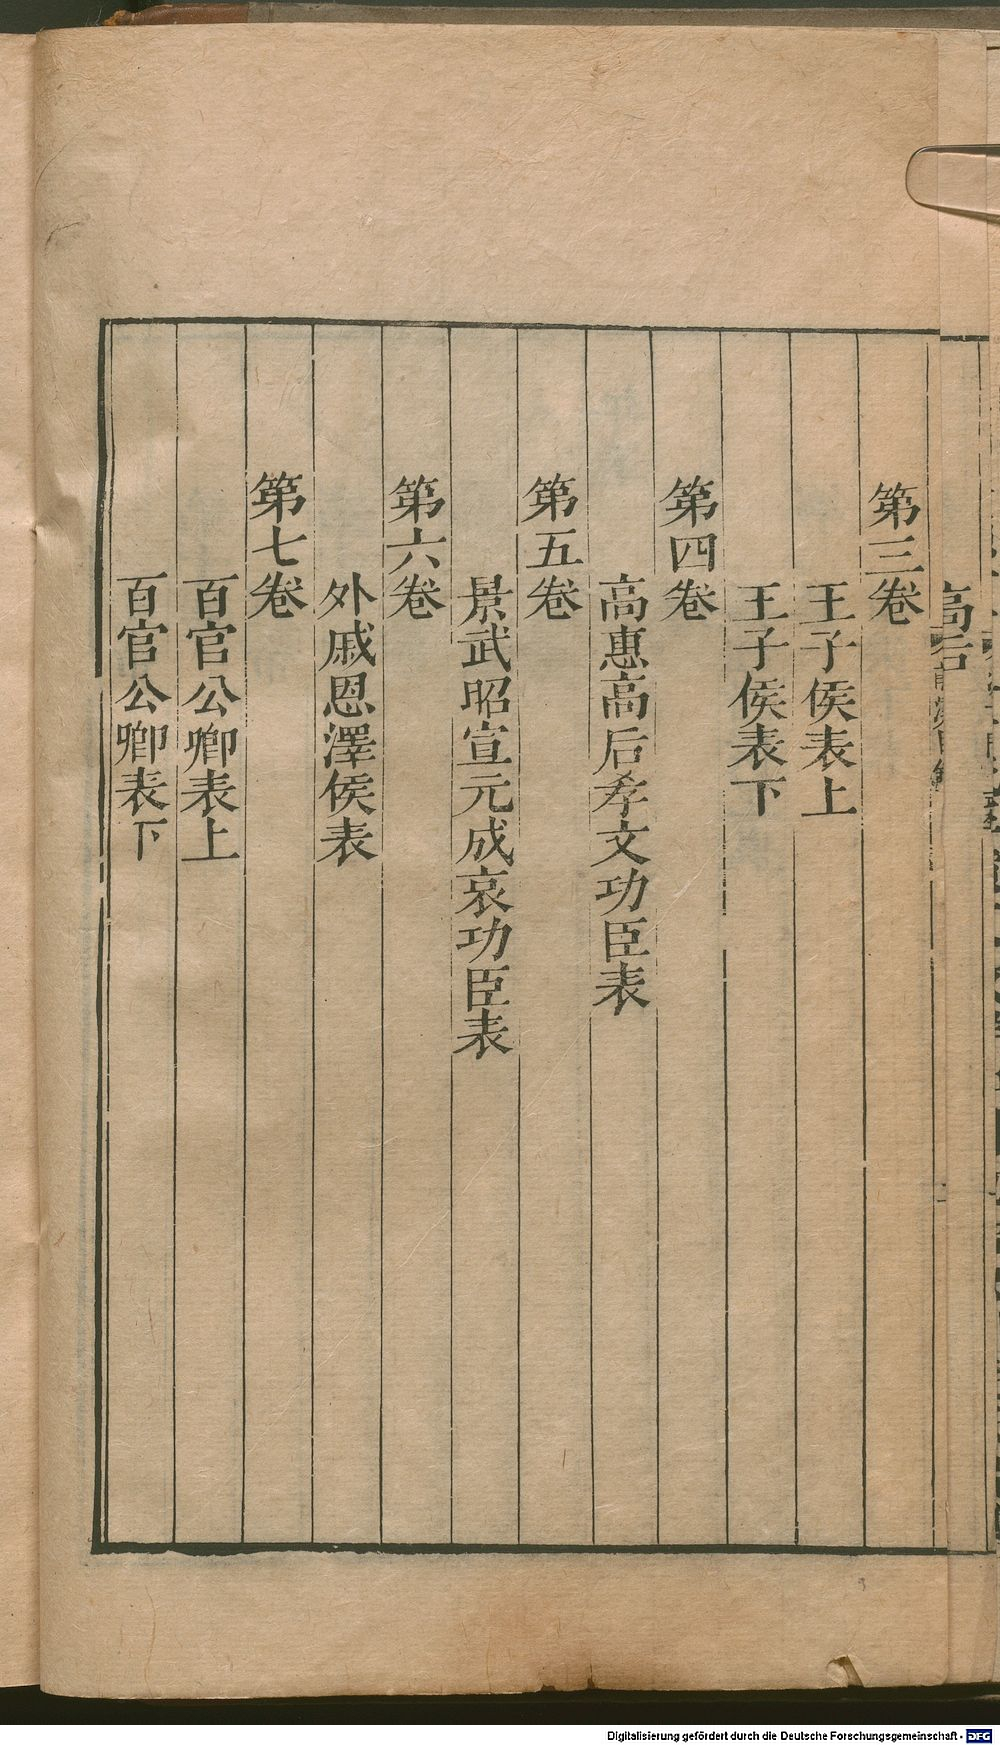 高后
前漢目錄
第三卷
王子侯表上
王子侯表下
第四卷
高惠高后孝文功臣表
第五卷
景武昭宣元成哀功臣表
第六卷
外戚恩澤侯表
第七卷
百官公卿表上
百官公卿表下
Digitalisierung gefördert durch die Deutsche Forschungsgemeinschaft - DFG